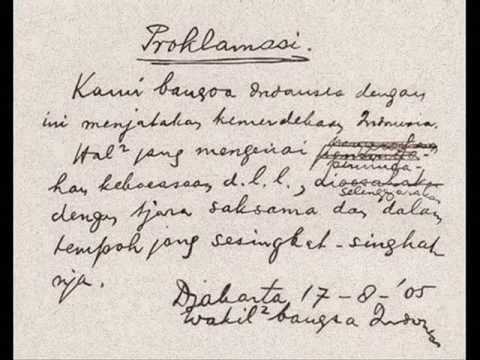 Proklamasi.
Kami bangsa Indonesia dengan
ini menjatakan kemerdekaan Indonesia.
Hal² jang mengenai
peminda-
han keboeasaan d.l.l.,
selenggarakan
dengan tjara saksama dan dalam
tempoh jang sesingket-singkat
nja.
Djakarta 17-8-'05
Wakil² bangsa Indones